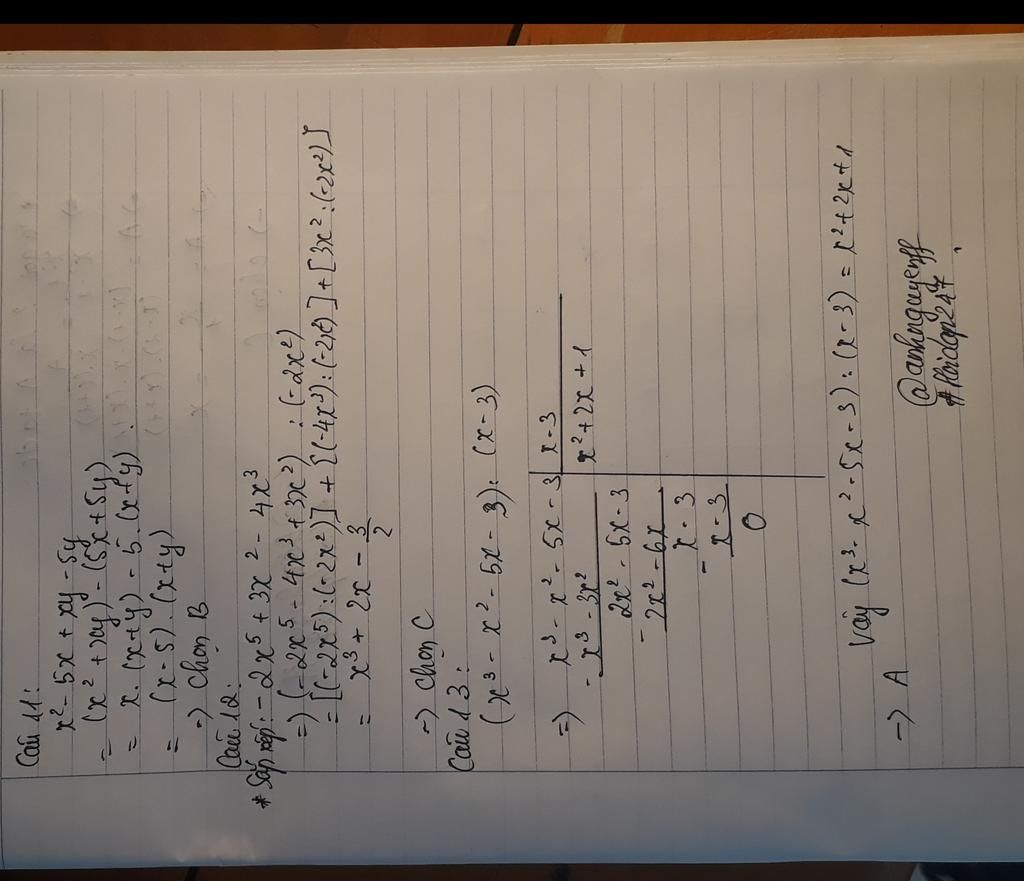 Câu 11:
x² - 5x + xy - 5y
= (x² + xy) - (5x + 5y)
= x. (x + y) - 5. (x + y)
= (x - 5). (x + y)
→ Chọn B
Câu 12:
* Sắp xếp: - 2x⁵ + 3x² - 4x³
=) (- 2x⁵ - 4x³ + 3x²) : (- 2x²)
= [(- 2x⁵) : (- 2x²)] + [(- 4x³) : (- 2x²)] + [3x² : (- 2x²)]
= x³ + 2x - 3/2
→ Chọn C
Câu 13:
(x³ - x² - 5x - 3) : (x - 3)
=) x³ - x² - 5x - 3 | x - 3
- x³ - 3x² | x² + 2x + 1
2x² - 5x - 3
- 2x² - 6x
x - 3
- x - 3
0
Vậy (x³ - x² - 5x - 3) : (x - 3) = x² + 2x + 1
→ A
@anhnguyenff
#hoidap247